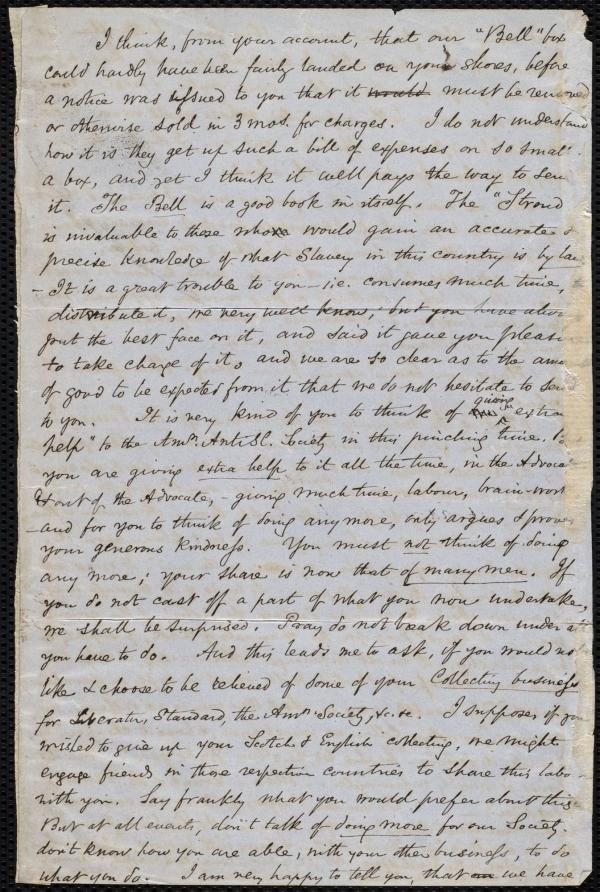 I think, from your account, that our "Bell" box
could hardly have been fairly landed on your shores, before
a notice was issued to you that it would must be removed
or otherwise sold in 3 mos. for charges. I do not understand
how it is they get up such a bill of expenses on so small
a box, and yet I think it well pays the way to sen
it. The Bell is a good book in itself. The "Stroud
is invaluable to those who would gain an accurate &
precise knowledge of what Slavery in this country is by law
- It is a great trouble to you - i.e. consumes much time,
distribute it, we very well know, but you have alwa
put the best face on it, and said it gave you pleasu
to take charge of it, and we are so clear as to the amo
of good to be expected from it that we do not hesitate to send
to you. It is very kind of you to think of giving extra
help" to the Amn. Anti Sl. Society in this pinching time.
you are giving extra help to it all the time, in the Advocat
& out of the Advocate, - giving much time, labour, brain-work
- and for you to think of doing any more, only argues & proves
your generous kindness. You must not think of doing
any more; your share is now that of many men. If
you do not cast off a part of what you now undertake,
we shall be surprised. Pray do not break down under al
you have to do. And this leads me to ask, if you would not
like & choose to be relieved of some of your Collecting business
for Liberator, Standard, the Amn. Society, &c. &c. I suppose, if you
wished to give up your Scotch & English collecting, we might
engage friends in those respective countries to share this labo
with you. Say frankly what you would prefer about this.
But at all events, don't talk of doing more for our Society.
don't know how you are able, with your other business, to do
what you do. I am very happy to tell you, that we have